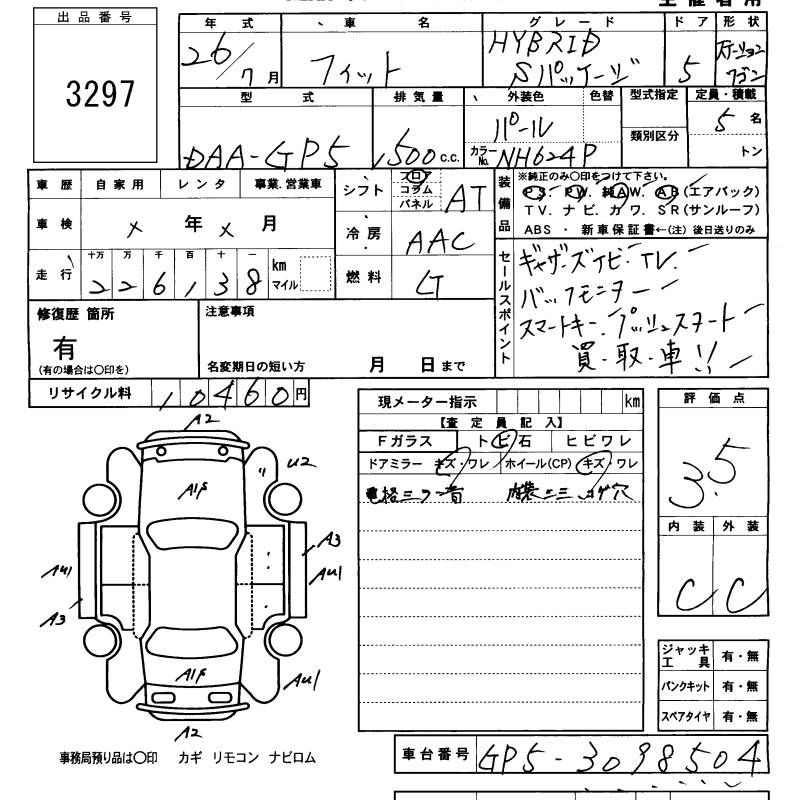 出品番号
3297
年式 車名 グレード ドア 形状
26/7月 フィット HYBRID Sパッケージ 5 ステーション ワゴン
型式 排気量 外装色 色替 型式指定 定員・積載
DAA-GP5 1500c.c. パール カラーNo. NH624P 類別区分 5名 トン
車歴 自家用 レンタ 事業.営業車
車検 × 年 × 月
走行 十万 万 千 百 十 一 km マイル
226138
シフト フロア コラム パネル AT
冷房 AAC
燃料
装備品 ※純正のみ〇印をつけて下さい。
PS. PW. 純AW. AB(エアバック)
TV. ナビ. カワ. SR(サンルーフ)
ABS ・ 新車保証書←(注) 後日送りのみ
セールスポイント
ギャザーズナビ・TV.
バックモニター
スマートキー. プッシュスタート
買・取・車!!
修復歴 箇所
有
(有の場合は〇印を)
注意事項
名変期日の短い方 月 日まで
リサイクル料 10460円
現メーター指示 km
【査定員記入】
Fガラス トビ石 ヒビワレ
ドアミラー キズ・ワレ ホイール(CP) キズ・ワレ
電格ミラー音 内装ニミ コゲ穴
評価点
3.5
内装 外装
C C
ジャッキ工具 有・無
パンクキット 有・無
スペアタイヤ 有・無
A2
U2
A1F
A3
AU1
AU1
A3
A1F
AU1
A2
事務局預り品は〇印 カギ リモコン ナビロム
車台番号 GP5-3098504